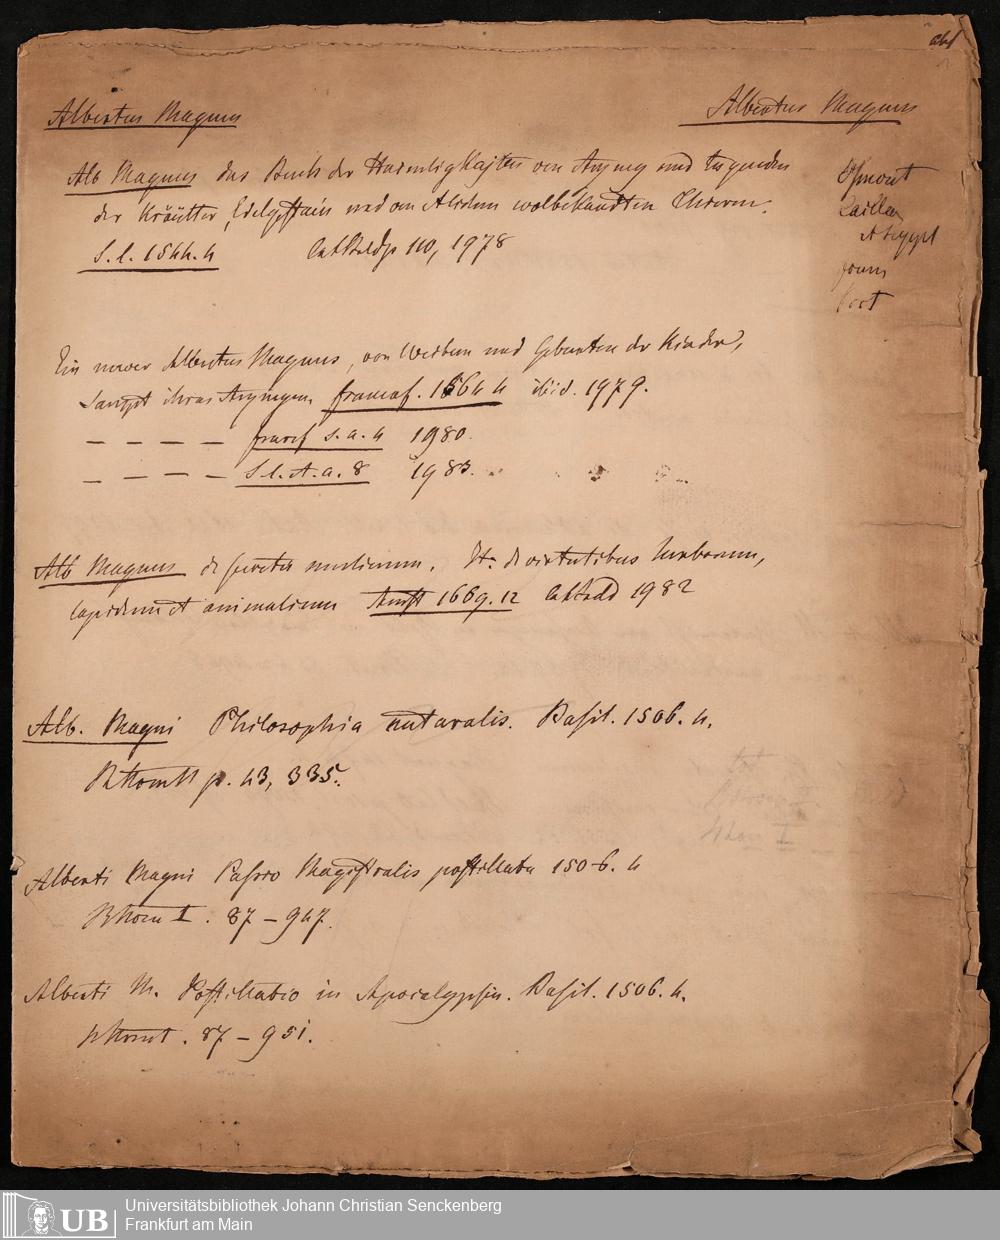 Albertus Magnus
Albertus Magnus
Alb Magnus das Buch der Haimligkajten von Arzney und Tugenden
der Kräütter, Edelgestain und von wolbekandten Thieren.
S. l. 1544. 4 110, 1978
Ein newer Albertus Magnus, von Weibern und Geburten der Kinder,
sampt ihren Arzneyen. 1664 4 ibid. 1979.
— — — — s. a. 4 1980.
— — — — S. l. A. a. 8 1983.
Alb Magnus de secretis mulierum. It. de virtutibus herbarum,
lapidum et animalium Amst 1669. 12 1982
Alb. Magni Philosophia naturalis. Basil. 1506. 4.
p. 43, 335.
Alberti Magni Passio Magistralis postillata 1506. 4
I. 87 – 947.
Alberti M. Postillatio in Apocalypsin. Basil. 1506. 4.
87 – 951.
UB
Universitätsbibliothek Johann Christian Senckenberg
Frankfurt am Main